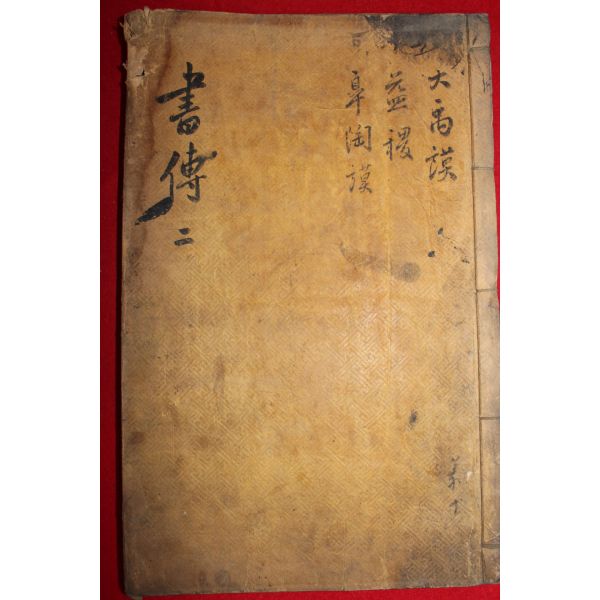 大禹謨
益稷
皐陶謨
書傳 二